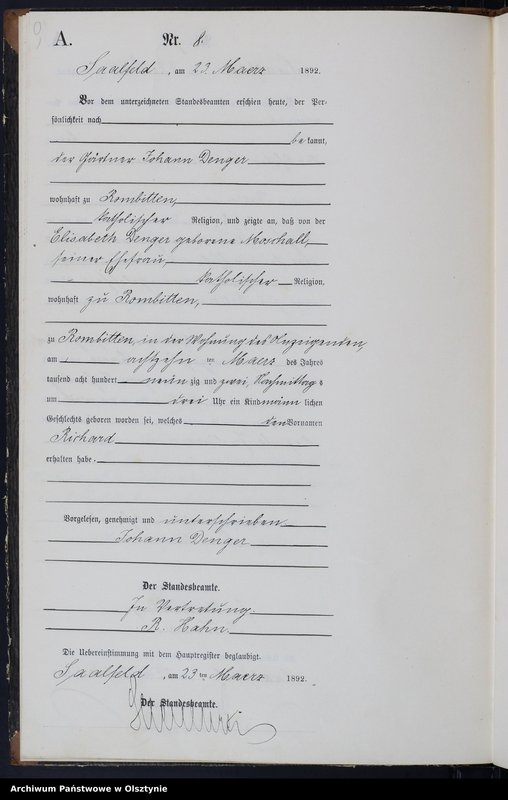 A. Nr. 8.
Saalfeld, am 23. Maerz 1892.
Vor dem unterzeichneten Standesbeamten erschien heute, der Per-
sönlichkeit nach
bekannt,
der Gärtner Johann Denger
wohnhaft zu Rombitten,
katholischer Religion, und zeigte an, daß von der
Elisabeth Denger geborene Moschall,
seiner Ehefrau,
katholischer Religion,
wohnhaft zu Rombitten,
zu Rombitten, in der Wohnung des Anzeigenden,
am achtzehn ten Maerz des Jahres
tausend acht hundert neunzig und zwei, Nachmittags
um drei Uhr ein Kind männlichen
Geschlechts geboren worden sei, welches den Vornamen
Richard
erhalten habe.
Vorgelesen, genehmigt und unterschrieben
Johann Denger
Der Standesbeamte.
In Vertretung.
R. Hahn.
Die Uebereinstimmung mit dem Hauptregister beglaubigt.
Saalfeld, am 23 ten Maerz 1892.
Der Standesbeamte.
Archiwum Państwowe w Olsztynie